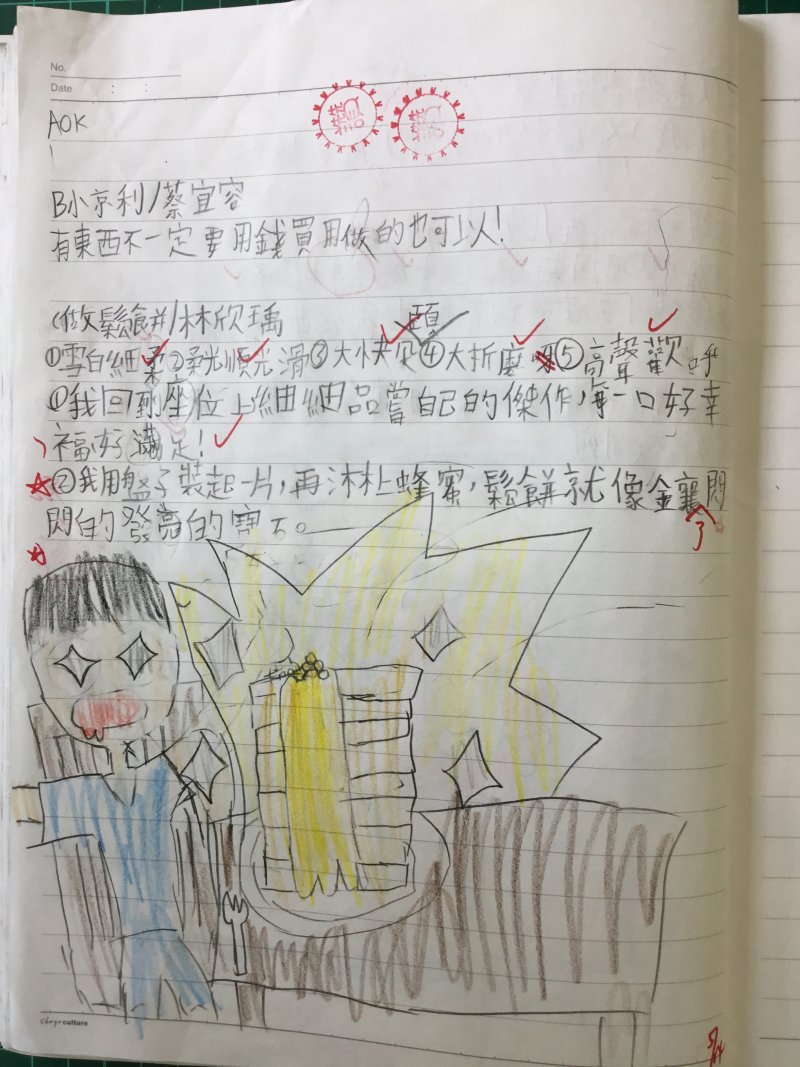 No.
Date : :
讚 讚
AOK
B小京利/蔡宜容
有東西不一定要用錢買用做的也可以!
(做鬆餅/林欣瑀
頤
①雪白細柔②柔光順光滑③大快朵④大折磨⑤高聲歡呼
①我回到座位上細細品嘗自己的傑作,每一口好幸
福好滿足!
②我用盤子裝起一片,再淋上蜂蜜,鬆餅就像金襄閃
了
閃的發亮的寶石。
Chryscultura
5/14